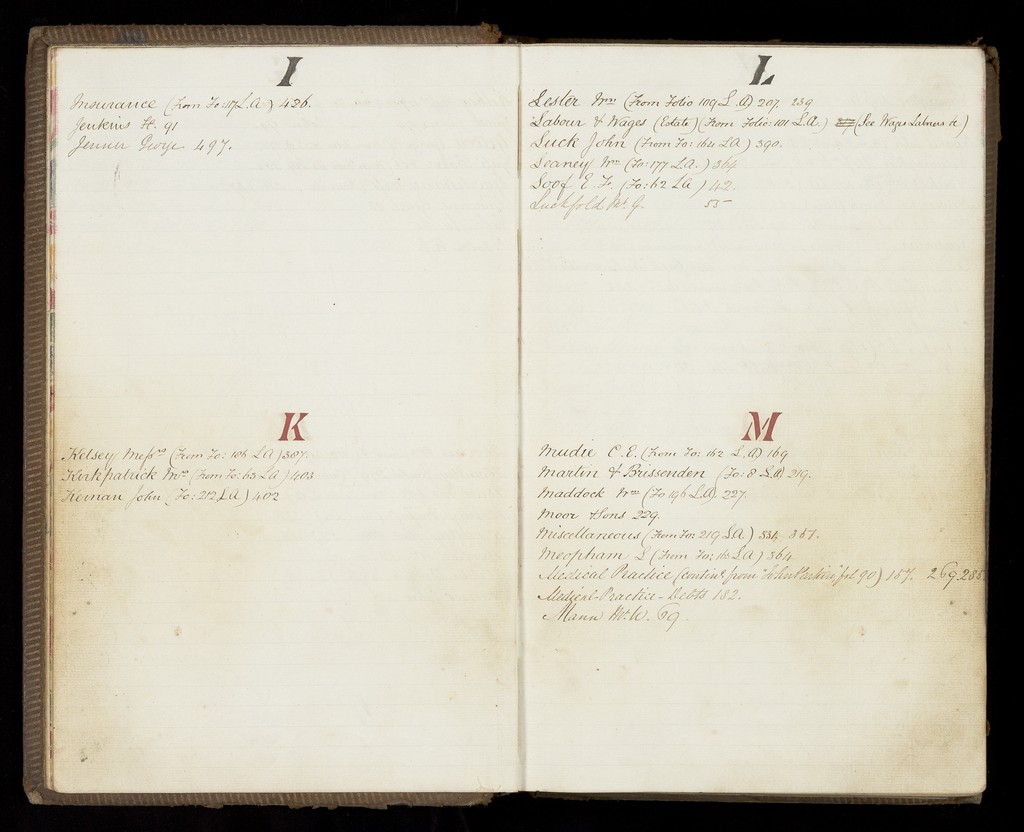 I
Insurance (from Fo: 117 L.A) 426.
Jenkins H. 91
Jenner George 497.
K
Kelsey Messrs (From Fo: 106 L.A) 387.
Kirkpatrick Mrs (From Fo: 63 L.A) 403
Keenan John (Fo: 212 L.A) 402
L
Lester Wm (From Folio 109 L.A) 207. 239
Labour & Wages (Estate) (From Folio: 101 L.A.) (See Wages Labourers &c)
Luck John (From Fo: 164 L.A) 390.
Leaney Wm (Fo: 177 L.A.) 364
Loof E. F. (Fo: 62 L.A) 42.
Luckfold 55
M
Mudie C. E. (From Fo: 162 L.A) 169
Martin & Brissenden (Fo: 8 L.A) 219.
Maddock Wm (Fo 196 L.A). 227.
Moor & Sons 229.
Miscellaneous (From Fo: 219 L.A) 334. 357.
Meopham L (From Fo: 160 L.A) 364
Medical Practice (contind from "John Parkin fol 90) 157. 269. 285
Medical Practice - Debts 182.
Mann W. 69.